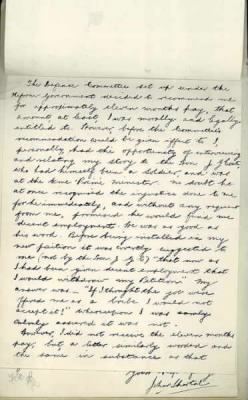 The Defence Committee set up under the
Hughes Government decided to recommend me
for approximately eleven months pay, that
amount at least I was morally and legally
entitled to. However before the Committee's
recommendation could be given effect to I,
personally had the opportunity of interviewing
and relating my story to the Hon J
who had himself been a soldier, and was
at the time Prime Minister. No doubt he
at once recognised the injustice done to me
for he immediately, and without any request
from me, promised he would find me
decent employment. He was as good as
his word. Before being installed in my
new position it was covertly suggested to
me (not by the Hon J G) that now as
I had been given decent employment that
I would withdraw my Petition. My
answer was "If I thought the job was
offered me as a bribe I would not
accept it!" Whereupon I was
calmly assured it was not.
However, I did not receive the eleven months
pay, but a letter similarly worded and
the same in substance as that
John